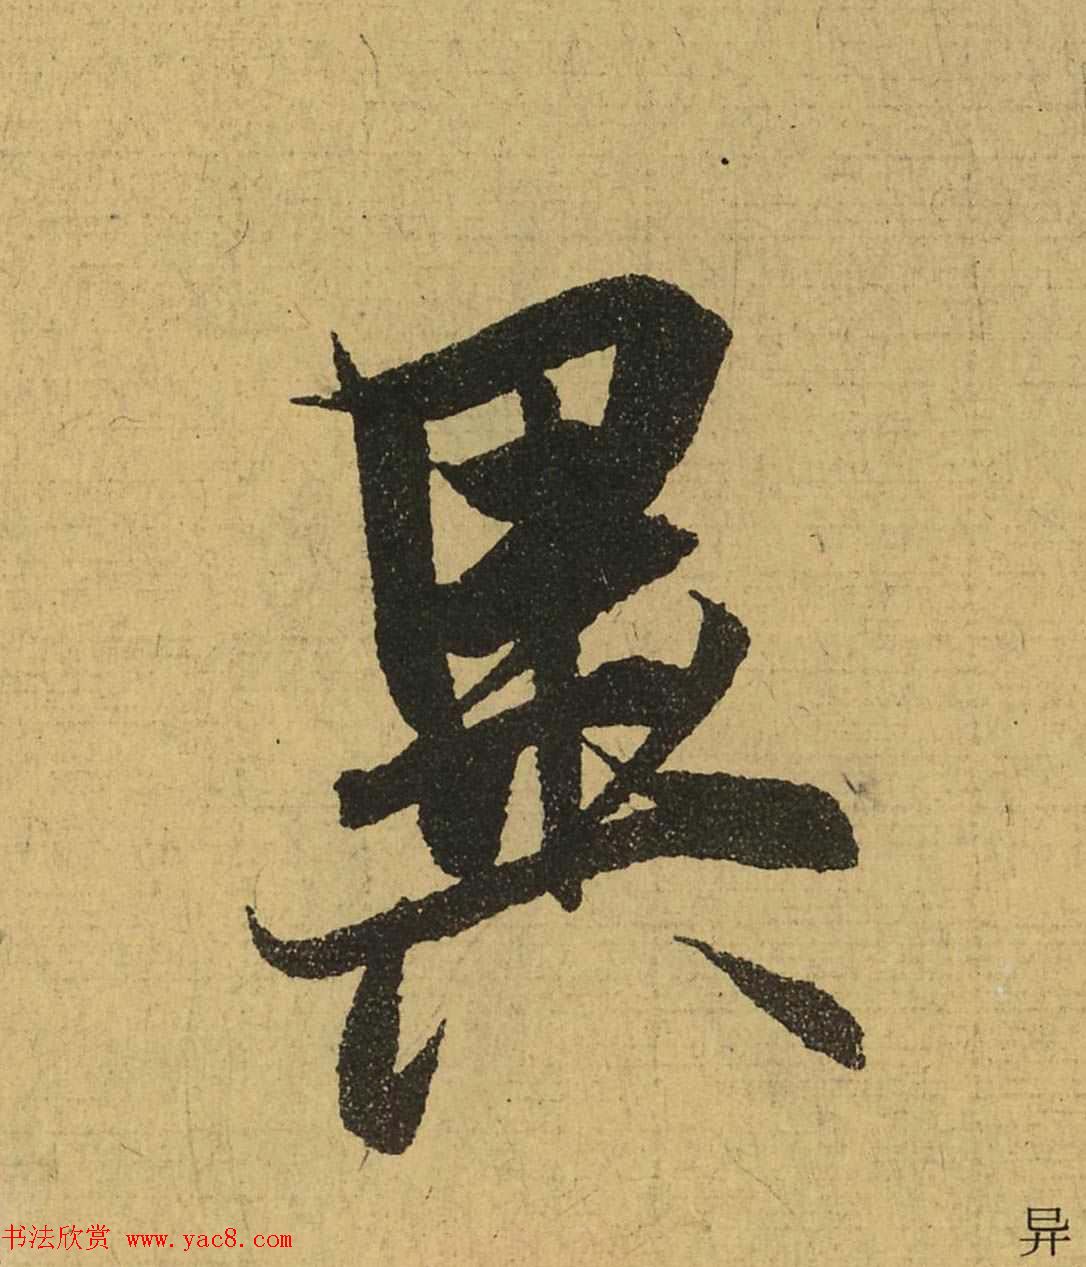 異
书法欣赏 www.yac8.com
异